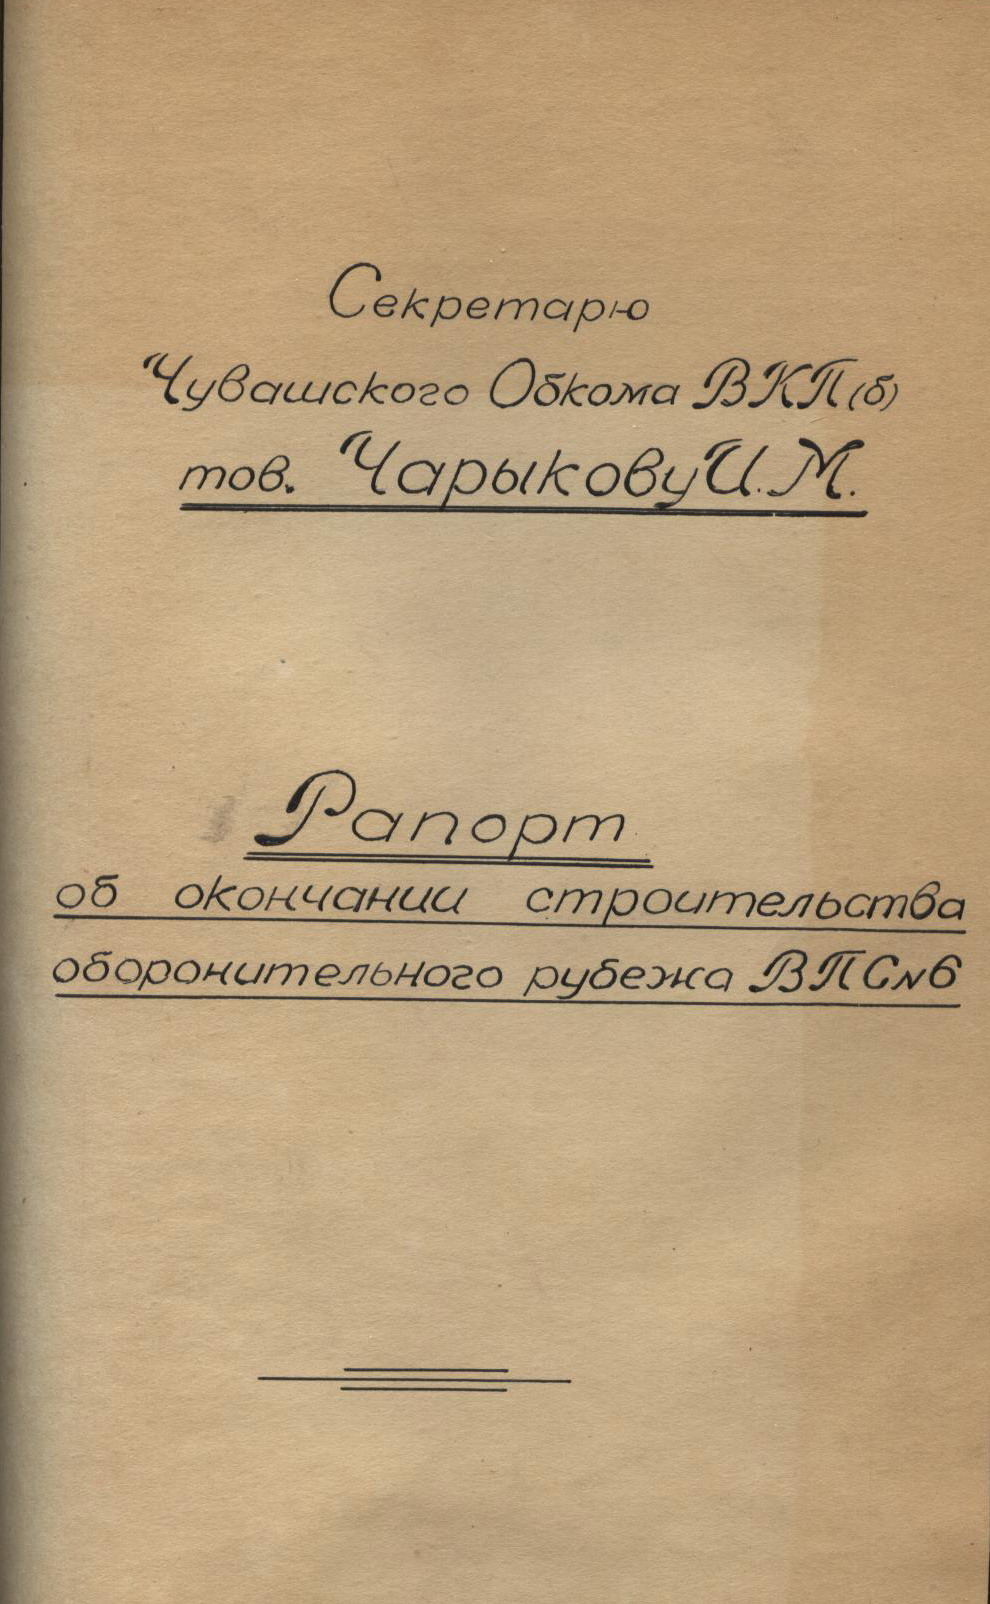 Секретарю
Чувашского Обкома ВКП(б)
тов. Чарыкову И.М.
Рапорт
об окончании строительства
оборонительного рубежа ВПС №6